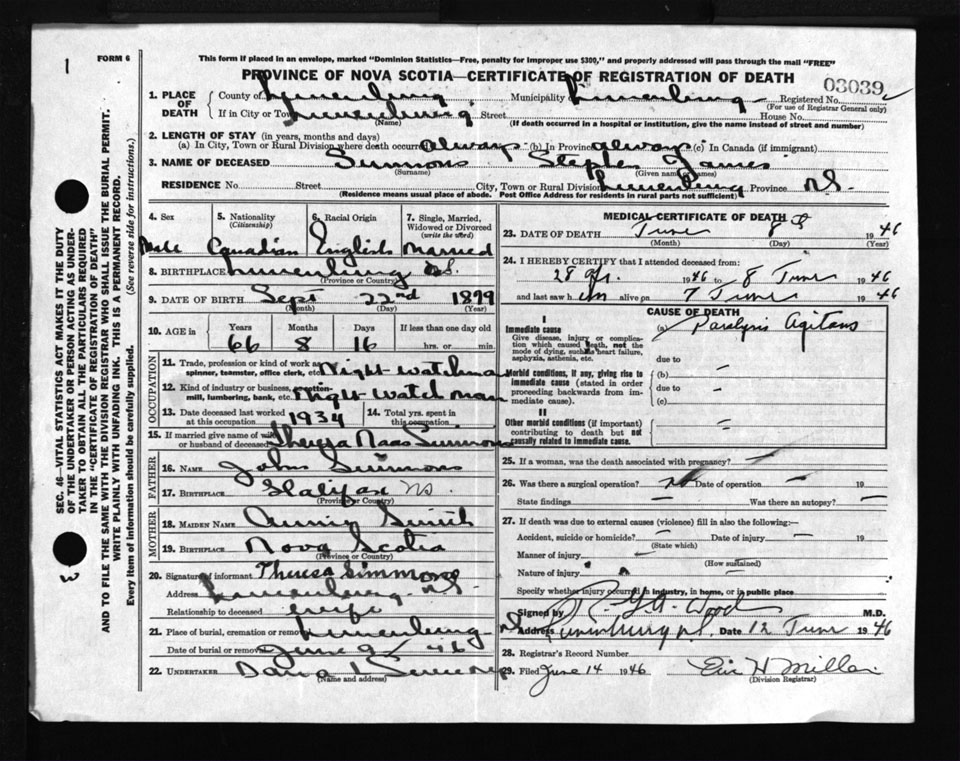 1
FORM 6
This form if placed in an envelope, marked "Dominion Statistics—Free, penalty for improper use $300," and properly addressed will pass through the mail "FREE"
PROVINCE OF NOVA SCOTIA—CERTIFICATE OF REGISTRATION OF DEATH
03039
1. PLACE OF DEATH
County of Lunenburg Municipality of Lunenburg Registered No.
(For use of Registrar General only)
If in City or Town Lunenburg Street House No.
(Name) (If death occurred in a hospital or institution, give the name instead of street and number)
2. LENGTH OF STAY (in years, months and days)
(a) In City, Town or Rural Division where death occurred always (b) In Province always (c) In Canada (if immigrant)
3. NAME OF DECEASED Simmons Stephen James
(Surname) (Given name or names)
RESIDENCE No. Street City, Town or Rural Division Lunenburg Province N.S.
(Residence means usual place of abode. Post Office Address for residents in rural parts not sufficient)
4. Sex 5. Nationality (Citizenship) 6. Racial Origin 7. Single, Married, Widowed or Divorced (write the word)
Male Canadian English Married
8. BIRTHPLACE Lunenburg N.S.
(Province or Country)
9. DATE OF BIRTH Sept 22nd 1899
(Month) (Day) (Year)
10. AGE in Years Months Days If less than one day old
66 8 16 hrs. or min.
OCCUPATION
11. Trade, profession or kind of work as spinner, teamster, office clerk, etc. Night watchman
12. Kind of industry or business, as cotton-mill, lumbering, bank, etc. Night watch man
13. Date deceased last worked at this occupation 1934 14. Total yrs. spent in this occupation
15. If married give name of wife or husband of deceased Theresa Naas Simmons
FATHER
16. NAME John Simmons
17. BIRTHPLACE Halifax N.S.
(Province or Country)
MOTHER
18. MAIDEN NAME Annie Smith
19. BIRTHPLACE Nova Scotia
(Province or Country)
20. Signature of informant Theresa Simmons
Address Lunenburg N.S.
Relationship to deceased wife
21. Place of burial, cremation or removal Lunenburg N.S.
Date of burial or removal June 9/46
22. UNDERTAKER
(Name and address)
MEDICAL CERTIFICATE OF DEATH
23. DATE OF DEATH June 8 1946
(Month) (Day) (Year)
24. I HEREBY CERTIFY that I attended deceased from:
28 1946 to 8 June 1946
and last saw him alive on 7 June 1946
CAUSE OF DEATH
I
Immediate cause
Give disease, injury or complication which caused death, not the mode of dying, such as heart failure, asphyxia, asthenia, etc.
(a) Paralysis Agitans
due to
Morbid conditions, if any, giving rise to immediate cause (stated in order proceeding backwards from immediate cause).
(b) —
due to —
(c)
II
Other morbid conditions (if important) contributing to death but not causally related to immediate cause.
25. If a woman, was the death associated with pregnancy? —
26. Was there a surgical operation? no Date of operation — 19
State findings — Was there an autopsy? —
27. If death was due to external causes (violence) fill in also the following:—
Accident, suicide or homicide? — Date of injury — 19
(State which)
Manner of injury —
(How sustained)
Nature of injury
Specify whether injury occurred in industry, in home, or in public place
Signed by Wood M.D.
Address Lunenburg N.S. Date 12 June 1946
28. Registrar's Record Number
29. Filed June 14 1946
(Division Registrar)
SEC. 46—VITAL STATISTICS ACT MAKES IT THE DUTY
OF THE UNDERTAKER OR PERSON ACTING AS UNDER-
TAKER TO OBTAIN ALL THE PARTICULARS REQUIRED
IN THE "CERTIFICATE OF REGISTRATION OF DEATH"
AND TO FILE THE SAME WITH THE DIVISION REGISTRAR WHO SHALL ISSUE THE BURIAL PERMIT.
WRITE PLAINLY WITH UNFADING INK. THIS IS A PERMANENT RECORD.
Every item of information should be carefully supplied. (See reverse side for instructions.)